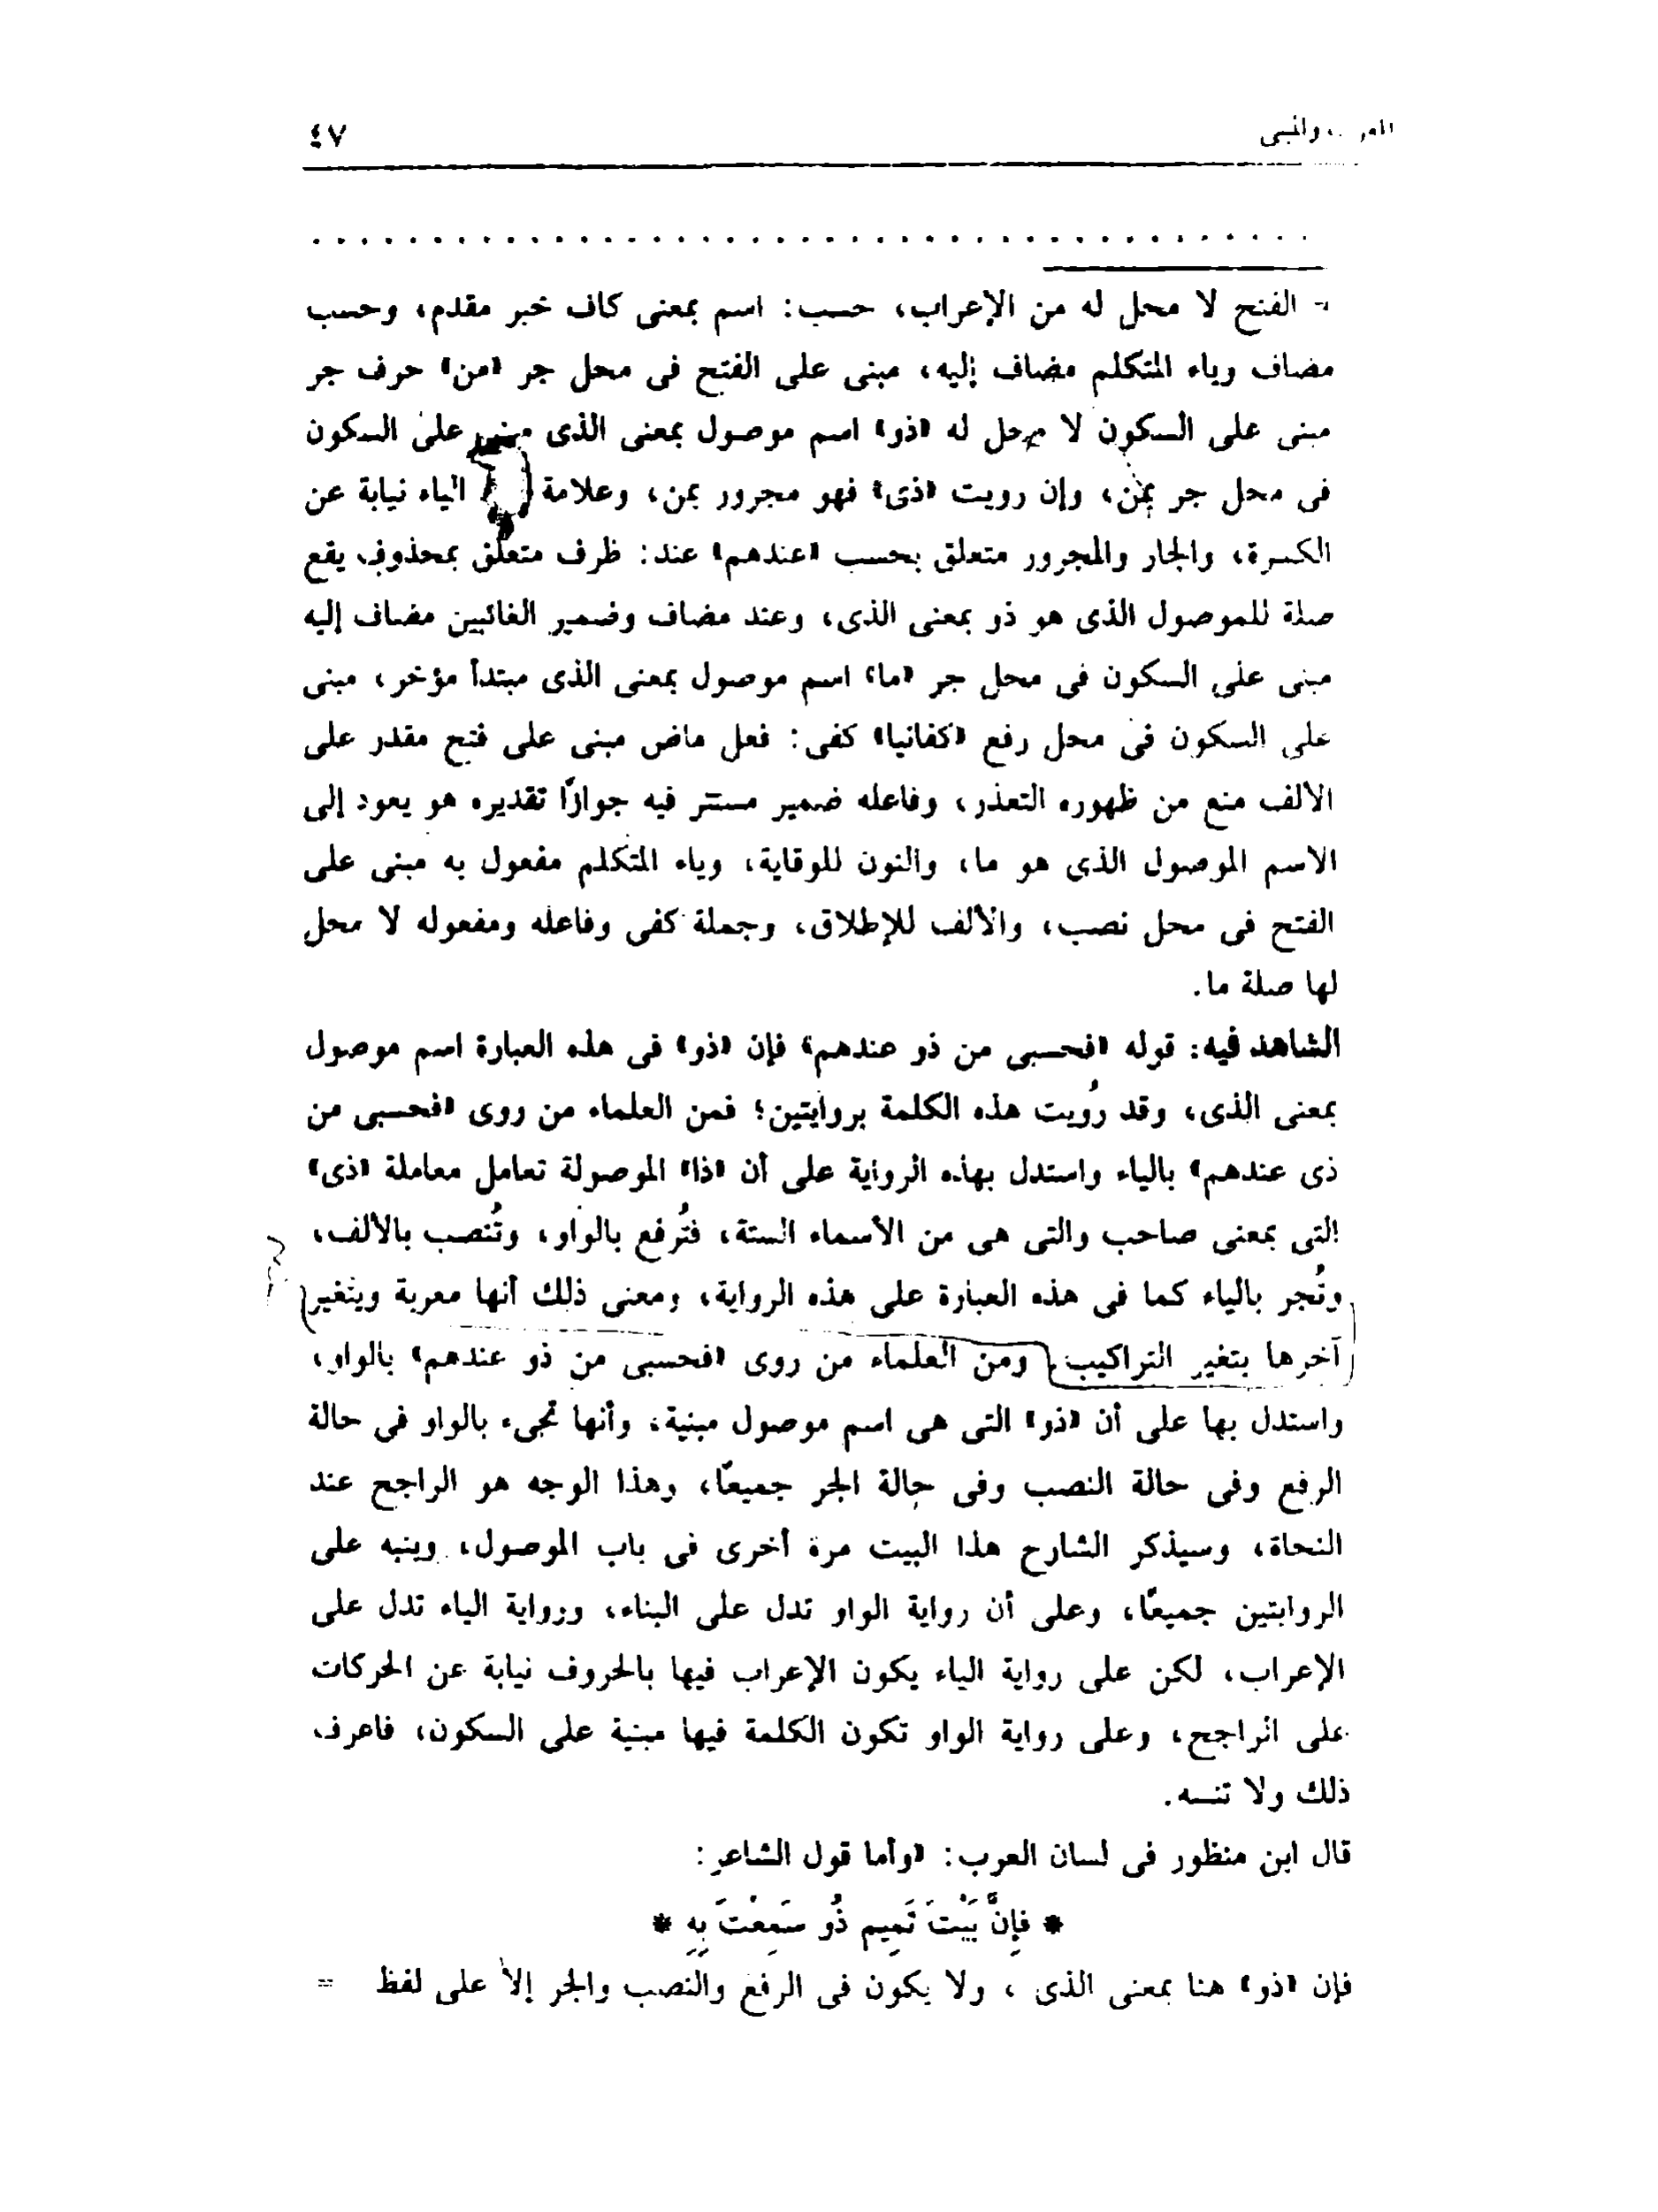 ٤٧ والمبنى
= الفتح لا محل له من الإعراب، حسب: اسم بمعنى كاف خبر مقدم، وحسب
مضاف وياء المتكلم مضاف إليه، مبنى على الفتح فى محل جر «من» حرف جر
مبنى على السكون لا محل له «ذو» اسم موصول بمعنى الذى مبنى على السكون
فى محل جر بمن، وإن رويت «ذى» فهو مجرور بمن، وعلامة الياء نيابة عن
الكسرة، والجار والمجرور متعلق بحسب «عندهم» عند: ظرف متعلق بمحذوف يقع
صلة للموصول الذى هو ذو بمعنى الذى، وعند مضاف وضمير الغائبين مضاف إليه
مبنى على السكون فى محل جر «ما» اسم موصول بمعنى الذى مبتدأ مؤخر، مبنى
على السكون فى محل رفع «كفانيا» كفى: فعل ماض مبنى على فتح مقدر على
الألف منع من ظهوره التعذر، وفاعله ضمير مستتر فيه جوازًا تقديره هو يعود إلى
الاسم الموصول الذى هو ما، والنون للوقاية، وياء المتكلم مفعول به مبنى على
الفتح فى محل نصب، والألف للإطلاق، وجملة كفى وفاعله ومفعوله لا محل
لها صلة ما.
الشاهد فيه: قوله «فحسبى من ذو عندهم» فإن «ذو» فى هذه العبارة اسم موصول
بمعنى الذى، وقد رُويت هذه الكلمة بروايتين؛ فمن العلماء من روى «فحسبى من
ذى عندهم» بالياء واستدل بهذه الرواية على أن «ذا» الموصولة تعامل معاملة «ذى»
التى بمعنى صاحب والتى هى من الأسماء الستة، فتُرفع بالواو، وتُنصب بالألف،
وتُجر بالياء كما فى هذه العبارة على هذه الرواية، ومعنى ذلك أنها معربة ويتغير
آخرها بتغير التراكيب، ومن العلماء من روى «فحسبى من ذو عندهم» بالواو،
واستدل بها على أن «ذو» التى هى اسم موصول مبنية، وأنها تجىء بالواو فى حالة
الرفع وفى حالة النصب وفى حالة الجر جميعًا، وهذا الوجه هو الراجح عند
النحاة، وسيذكر الشارح هذا البيت مرة أخرى فى باب الموصول، وينبه على
الروايتين جميعًا، وعلى أن رواية الواو تدل على البناء، ورواية الياء تدل على
الإعراب، لكن على رواية الياء يكون الإعراب فيها بالحروف نيابة عن الحركات
على الراجح، وعلى رواية الواو تكون الكلمة فيها مبنية على السكون، فاعرف
ذلك ولا تنسه.
قال ابن منظور فى لسان العرب: «وأما قول الشاعر:
* فإِنَّ بَيْتَ تَمِيم ذُو سَمِعْتَ بِهِ *
فإن «ذو» هنا بمعنى الذى ، ولا يكون فى الرفع والنصب والجر إلا على لفظ =